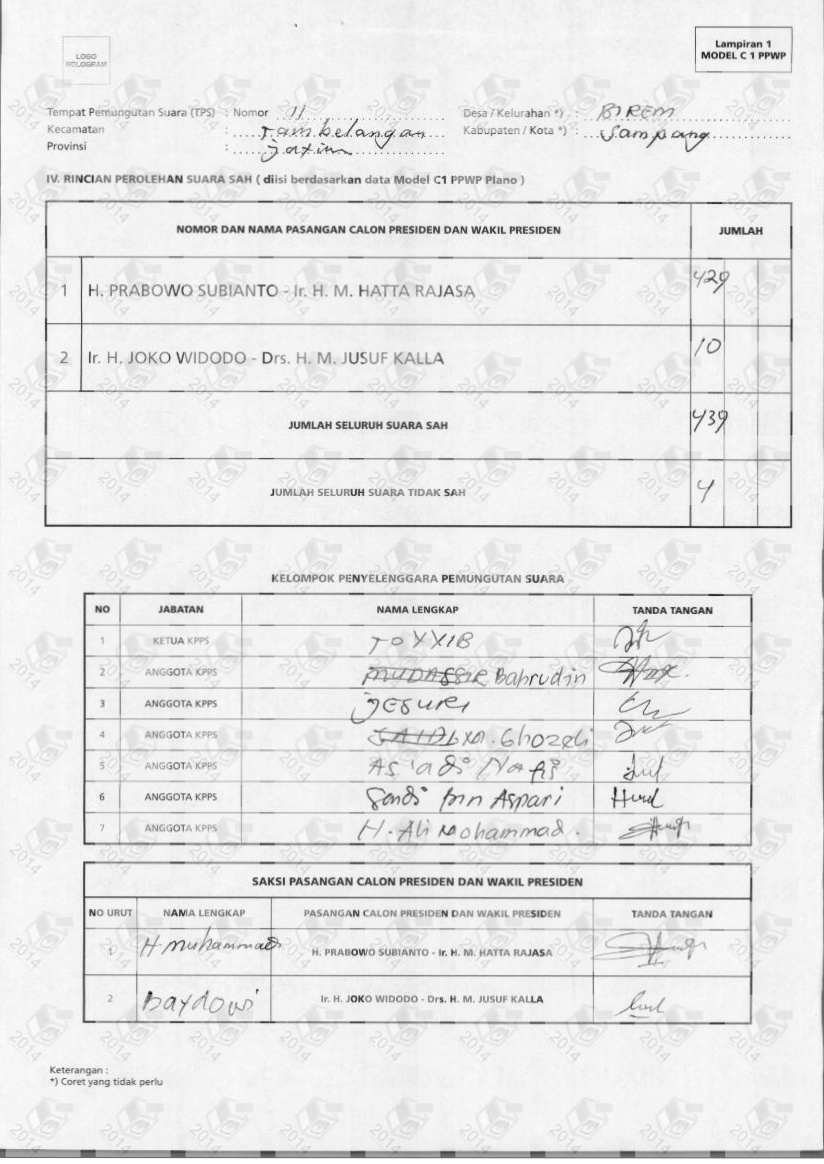 LOGO
HOLOGRAM
Lampiran 1
MODEL C 1 PPWP
Tempat Pemungutan Suara (TPS) : Nomor 11
Desa / Kelurahan *) : BIREM
Kecamatan : Tambelangan
Kabupaten / Kota *) : Sampang
Provinsi : Jatim
IV. RINCIAN PEROLEHAN SUARA SAH ( diisi berdasarkan data Model C1 PPWP Plano )
NOMOR DAN NAMA PASANGAN CALON PRESIDEN DAN WAKIL PRESIDEN JUMLAH
1 H. PRABOWO SUBIANTO - Ir. H. M. HATTA RAJASA 429
2 Ir. H. JOKO WIDODO - Drs. H. M. JUSUF KALLA 10
JUMLAH SELURUH SUARA SAH 439
JUMLAH SELURUH SUARA TIDAK SAH 4
KELOMPOK PENYELENGGARA PEMUNGUTAN SUARA
NO JABATAN NAMA LENGKAP TANDA TANGAN
1 KETUA KPPS TOYYIB
2 ANGGOTA KPPS MUDASSIR Bahrudin
3 ANGGOTA KPPS JESURI
4 ANGGOTA KPPS Ghozali
5 ANGGOTA KPPS As'adi Nafis
6 ANGGOTA KPPS Sandi bin Aspari
7 ANGGOTA KPPS H. Ali Mohammad.
SAKSI PASANGAN CALON PRESIDEN DAN WAKIL PRESIDEN
NO URUT NAMA LENGKAP PASANGAN CALON PRESIDEN DAN WAKIL PRESIDEN TANDA TANGAN
1 H muhammad H. PRABOWO SUBIANTO - Ir. H. M. HATTA RAJASA
2 Baydowi Ir. H. JOKO WIDODO - Drs. H. M. JUSUF KALLA
Keterangan :
*) Coret yang tidak perlu